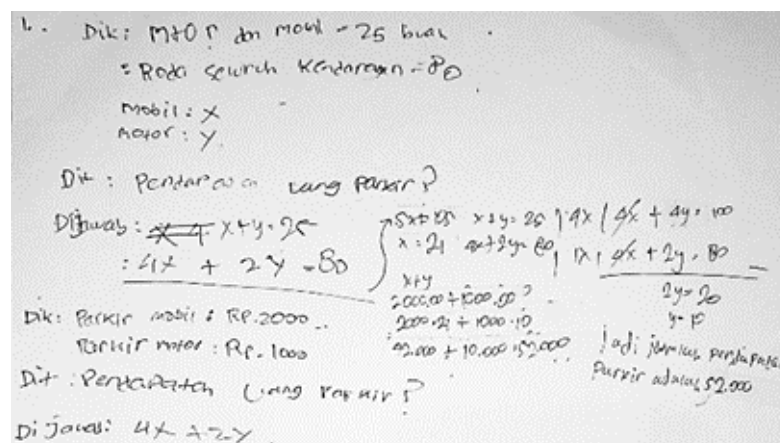 1. Dik: Motor dan mobil = 25 buah
: Roda seluruh kendaraan = 80
mobil: x
motor: y
Dit: Pendapatan uang parkir?
Dijawab: x+y=25
: 4x + 2y = 80
x+y=25 | 4x | 4x + 4y = 100
x = 21 4x+2y=80 | 1x | 4x + 2y = 80
2y=20
y=10
x+y
2000.00+1000.00
2000.21 + 1000.10
42.000 + 10.000 = 52.000
Jadi jumlah pendapatan
Parkir adalah 52.000
Dik: Parkir mobil : RP.2000
Parkir motor : Rp.1000
Dit: Pendapatan uang parkir?
Di jawab: 4x + 2y